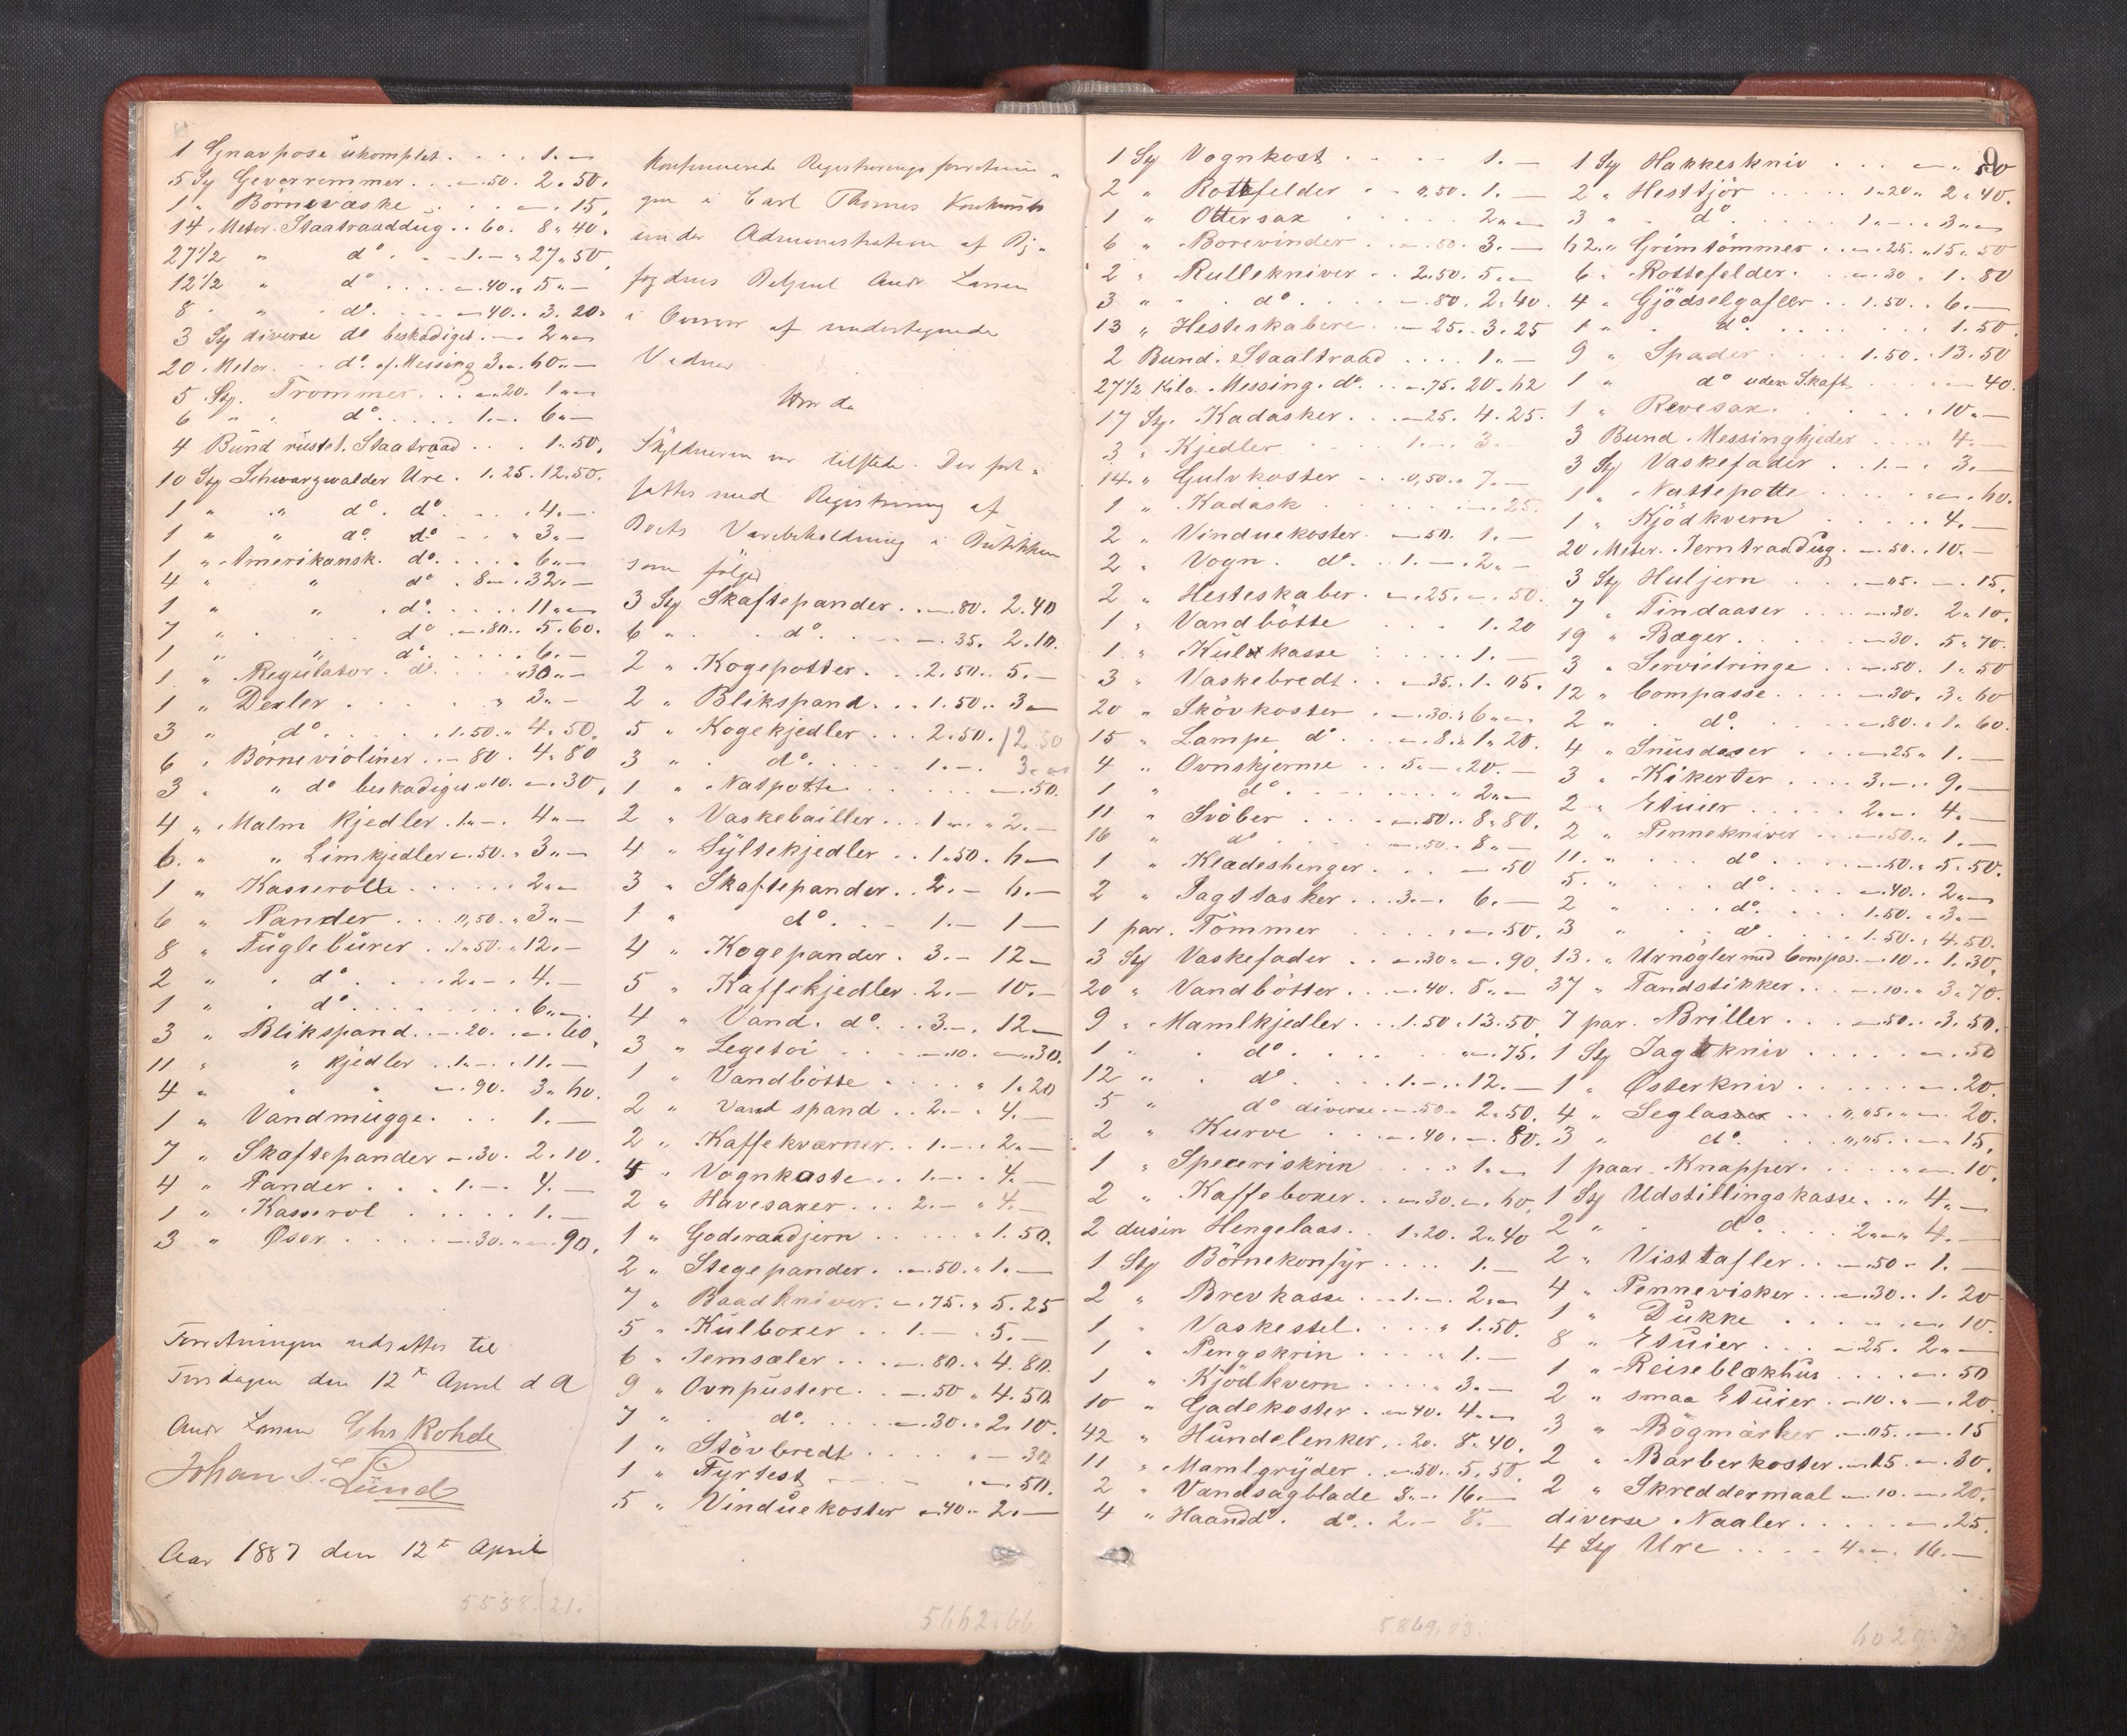 1 Gnavpose ukomplet. . . . 1.—
5 Sty Geverremmer. . . —.50. 2.50.
1 " Börnevæske . . . —. 15.
14 Meter. Staatraaddug. . 60. 8.40.
27 1/2 " d° . . 1.— " 27.50.
12 1/2 " d° . . . . —.40. " 5.—
8 " " d° . . . —40. . 3.20.
3 Sty diverse d° beskadiget. —. 2.—
20 Meter. . . d°. af Messing 3.—. 60.—
5 Sty. Trommer. . . —20. 1.—
6 " " d°. . . . 1.—. 6.—
4 Bund rustet. Staatraad . . . 1.50.
10 Sty Schwarzwalder Ure. 1.25. 12.50.
1 " " d°. d°. . . . 4.—
1 " " d°. d° . . " 3.—
1 " Amerikansk. d°. . . . . 6.—
4 " " d° . 8.— . 32.—
1 " " . d°. . . . . 11.—
7 " . . d° —.80. . 5.60.
1 " " d°. . . . . 6.—
1 " Regulator. d°. . . . "30.—
1 " Dexler . . . . . " 3.—
3 " d°. . . . . 1.50. " 4.50.
6 " Börnevioliner. . —80. 4.80
3 " " d° beskadiget —10. —.30.
4 " Malm Kjedler. 1.—. 4.—
6. " " Limkjedler —.50. " 3.—
1 " Kasserolle . . . . . . 2.—
6 " Pander . . . 0,50. " 3.—
8 " Fuglebürer. . 1.50. " 12.—
2 " . d° . . . . 2.—. 4.—
1 " . d°. . . . . . . . 6.—
3 " Blikspand. . —20. . —.60.
11 " " kjedler . 1.—. . 11.—
4 " " " —.90. 3.60.
1 " Vandmugge. . . . 1.—
7 " Skaftepander —.30. 2.10.
4 " Pander. . . . 1.—. 4.—
1 " Kasserol . . . . . 1.—
3 " Öser. . . . . —.30. " —.90.
Forretningen udsættes til
Tirsdagen den 12te April d A
Andr Larsen Chs Rohde
Johan S. Lund
Aar 1887 den 12te April
5558.21.
Registreringsforretnin-
gen i Carl Thomes Konkursbo
under Administration af By-
fogdens Betjent Andr Larsen
i Overvær af undertegnede
Vidner
Hvor da
Skyldneren var tilstede. Der fort-
sattes med Registrering af
Boets Varebeholdning i Butikken
som fölger
3 Sty Skaftepander. . —.80. 2.40
6 " . . d°. . . . —. 35. 2.10.
2 " Kogepotter. . . 2.50. . 5.—
2 " Blikspand. . . 1.50. . 3—
5 " Kogekjedler. . . 2.50. 12.50
3 " . d°. . . . . 1.—. 3.—
1 " Natpotte . . . . . . —.50.
2 " Vaskebailler. . . 1.—. " 2.—
4 " Syltekjedler . . 1.50. 6—
3 " Skaftepander. . 2.— 6.—
1 " d°. . . 1.— 1—
4 " Kogepander. 3.— 12—
5 " Kaffekjedler. 2.— 10.—
4 " Vand. d°. . . 3.—. 12—
3 " Legetöi . . . . —10. —.30.
1 " Vandbötte . . . . " 1.20
2 " Vand spand . . 2.— . 4.—
2 " Kaffekværner. . 1.—. . 2.—
4 " Vognkoste . . 1.—. . 4.—
2 " Havesaxer. . . 2.— " 4.—
1 " Goderaadjern . . . . . " 1.50.
2 " Stegepander. . —.50. " 1.—
7 " Baadkniver. —.75. " 5.25
5 " Kulboxer . . 1.— . 5.—
6 " Jernsæler . . . —.80. " 4.80.
9 " Ovnpustere. . —.50 " 4.50
7 " . d°. . . . . —.30. . 2.10.
1 " Stövbredt . . . . . " — 30
1 " Fyrtest — — — — . —.50.
5 " Vinduekoster —40.— 2.—
5662.66
9
1 Sty Vognkost . . . . . 1.—
2 " Rottefelder . . 0,50. 1.—
1 " Ottersax . . . . . 2.—
6 " Borevinder . . —.50. 3.—
2 " Rullekniver . . 2.50. 5.—
3 " . . d°. . . . . —.80. 2.40.
13 " Hesteskabere. . —25. . 3.25
2 Bund. Staaltraad . . . . 1.—
27 1/2 Kilo. Messing. d°. . —.75. 20.62
17 Sty. Kadasker. . . —25. 4.25.
3 " Kjedler . . . . 1.—. 3—
14. " Gulvkoster . . . 0,50. " 7.—
1 " Kadask . . . . . . —.25.
2 " Vinduekoster. . —50. 1.—
2 " Vogn. d°. . . 1.—. 2.—
2 " Hesteskaber. . —.25. —. 50.
1 " Vandbötte . . . 1.20
1 " Kulkasse . . . . 1.—
3 " Vaskebredt . . —35. . 1.05.
20 " Skövkoster . . —.30. " 6.—
15 " Lampe d°. . . —.8. " 1.20.
4 " Ovnskjerme . . 5.— . 20.—
1 " d°. . . . . . . 2.—
11 " Svöber . . . . —.80. . 8.80.
16 " d°. . . . . . —.50. . 8.—
1 " Klædeshenger. . . . —50
2 " Jagttasker . . . 3.—. 6.—
1 par. Tömmer . . . . . . —.50.
3 Sty Vaskefader . . —.30. " —.90.
20 " Vandbötter. . . —.40. 8.—
9 " Mamlkjedler . . . 1.50 . 13.50
1 " . d°. . . . . . " —.75.
12 " . d°. . . . . 1.—. . 12.—
5 " d° diverse. —.50. 2.50.
2 " Kurve . . . —.40. —.80.
1 " Speceriskrin . . . . . 1.—
2 " Kaffeboxer. . —.30. —. 60.
2 dusin Hengelaas. . 1.20. 2.40
1 Sty Börnekonfyr . . . . 1.—
2 " Brevkasse . . 1.—. 2.—
1 " Vaskestel . . . . " 1.50.
1 " Pengskrin . . . . . 1.—
1 " Kjödkvern . . . . " 3.—
10 " Gadekoster . —40. 4.—
42 " Hundelenker. . 20. 8.40.
11 " Mamlgryder. . —50. . 5.50.
2 " Vandsagblade 8.— 16.—
4 " Haandd°. d°. . 2.— 8.—
5869,03.
1 Sty Hakkeskniv . . . —. 50
2 " Hesttjör . . . . . 1.20 " 2.40.
3 " . d°. . . . . 1.—. . 3.—
62. " Grimtömmer . . —.25. " 15.50
6 " Rottefelder. . . —.30 . 1.80
4 " Gjödselgafler . . 1.50. . 6.—
1 " . d°. . . . . . . . 1.50.
9 " Spader . . . . 1.50. . 13.50
1 " d° uden Skaft . . . . —40.
1 " Revesax. . . . . . " 10.—
3 Bund. Messingkjeder . . . . . 4.—
3 Sty Vaskefader . . 1.—. . 3.—
1 " Nattepotte . . . . . " —. 60.
1 " Kjödkvern . . . . . 4.—
20 Meter. Jerntraaddug. . —.50. . 10.—
3 Sty Huljern . . . —05. —. 15.
7 " Tindaaser . . . . —.30. 2.10.
19 " Bæger. . . . . . —30. 5.70.
3 " Servietringe . . —.50. 1.50
12 " Compasse. . . . —30. 3.60
2 " . d°. . . . . —.80. . 1.60.
4 " Snusdaser . . . —25. 1.—
3 " Kikerter . . . . 3.—. . 9.—
2 " Etuier . . . . . 2.—. 4.—
2 " Pennekniver . . . —.50. . 1.—
11. " d°. . . . —.50. . 5.50.
5. " . . . d°. . . . —.40. . 2.—
2 " . . d°. . . . 1.50. . 3.—
3 " . . d°. . . . 1.50. . 4.50.
13. " Urnögler med Compas. —10. . 1.30.
37 " Tandstikker. . . —.10. . 3.70.
7 par. Briller . . . —50. . 3.50.
1 Sty Jagtkniv . . . . . —.50
1 " Østerkniv. . . . . . —.20.
4 " Seglasser . . . 0,05. . —. 20.
3 " d°. . . . 0,05. . — 15.
1 paar. Knapper. . . . . —.10.
1 Sty Udstillingskasse. . " 4.—
2 " . d°. . . . 2.— " 4.—
2 " Visttafler. . . —.50 . 1.—
4 " Pennevisker. . . —.30. . 1.20
1 " Dukke . . . . . —. 10.
8 " Etuier . . . . —25. 2.—
1 " Reiseblækhus . . . . —.50
2 " smaa Etuier. . —10. . —.20.
3 " Bögmärker . —.05. —. 15
2 " Barberkoster. —15. —.30.
2 " Skreddermaal —.10. —.20.
diverse Naaler. . . . . —.25.
4 Sty Ure . . . . 4.—. 16.—